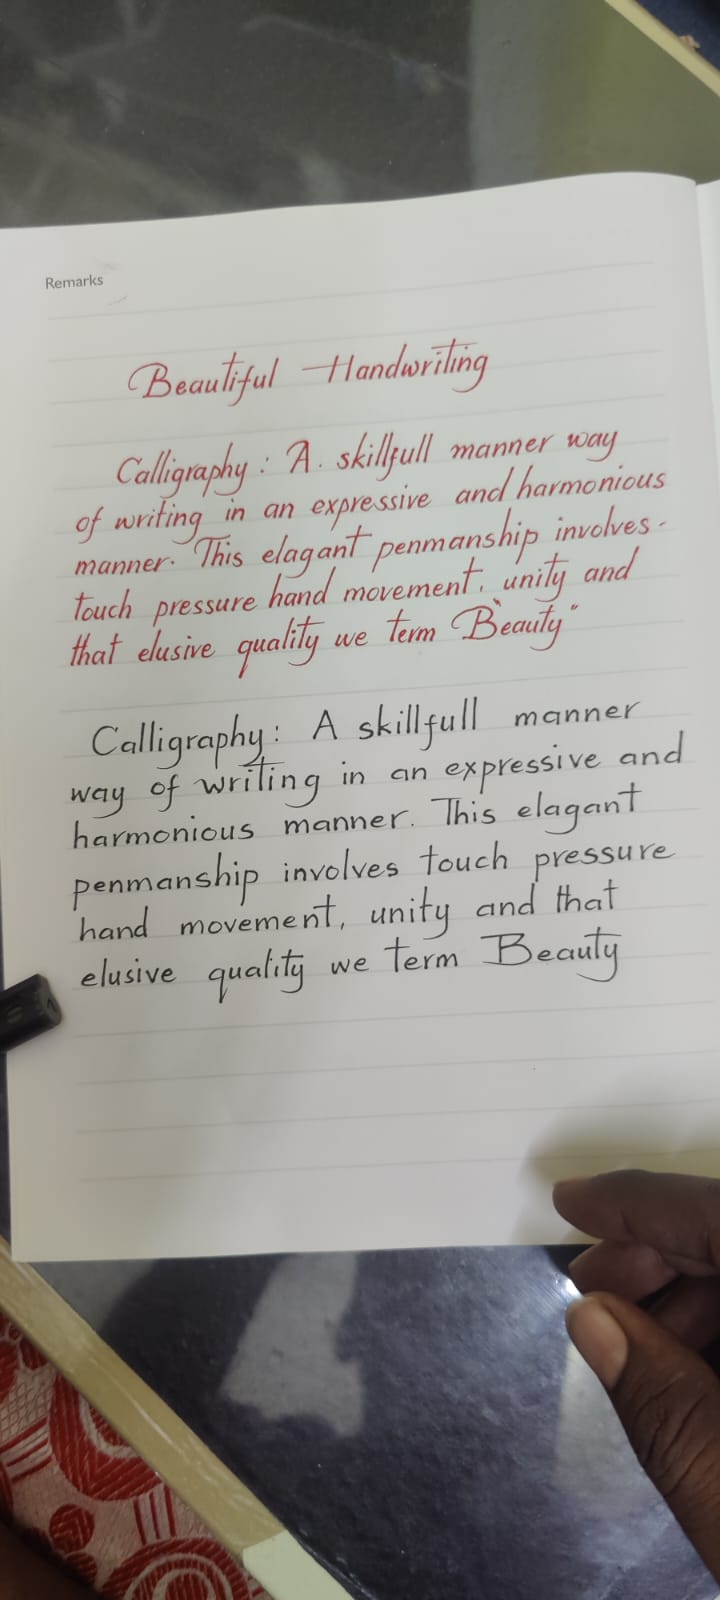 Remarks
Beautiful Handwriting
Calligraphy : A. skillfull manner way
of writing in an expressive and harmonious
manner. This elagant penmanship involves-
touch pressure hand movement, unity and
that elusive quality we term "Beauty"
Calligraphy: A skillfull manner
way of writing in an expressive and
harmonious manner. This elagant
penmanship involves touch pressure
hand movement, unity and that
elusive quality we term Beauty